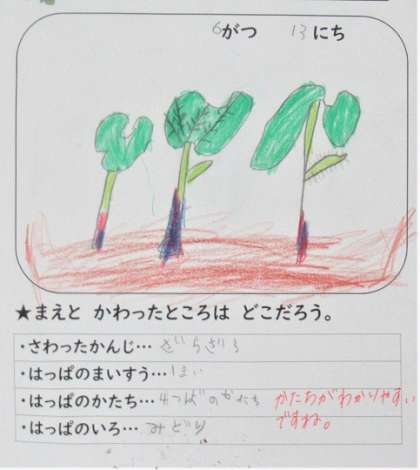 6がつ 13にち
★まえと かわったところは どこだろう。
・さわったかんじ…ざらざら
・はっぱのまいすう…1まい
・はっぱのかたち…4つばのかたち
かたちがわかりやすい
ですね。
・はっぱのいろ…みどり